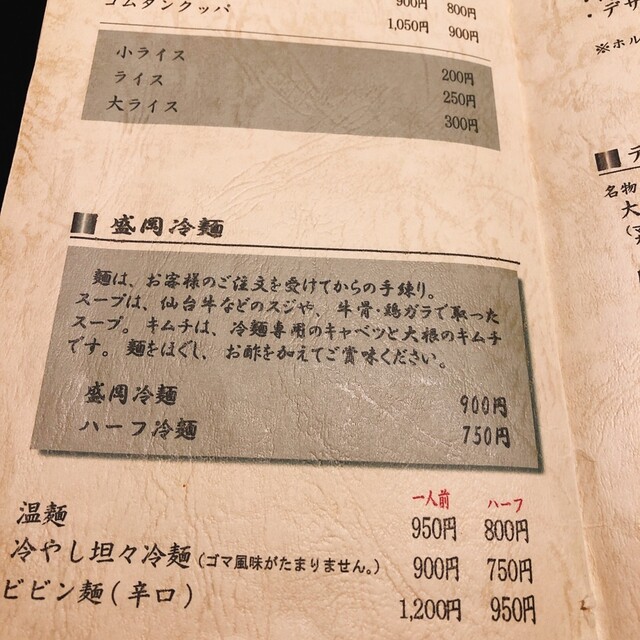 コムタンクッパ 900円 800円
1,050円 900円
小ライス 200円
ライス 250円
大ライス 300円
盛岡冷麺
麺は、お客様のご注文を受けてからの手練り。
スープは、仙台牛などのスジや、牛骨・鶏ガラで取った
スープ。キムチは、冷麺専用のキャベツと大根のキムチ
です。麺をほぐし、お酢を加えてご賞味ください。
盛岡冷麺 900円
ハーフ冷麺 750円
一人前 ハーフ
温麺 950円 800円
冷やし坦々冷麺(ゴマ風味がたまりません。) 900円 750円
ビビン麺(辛口) 1,200円 950円
・デザ
※ホル
デ
名物
大